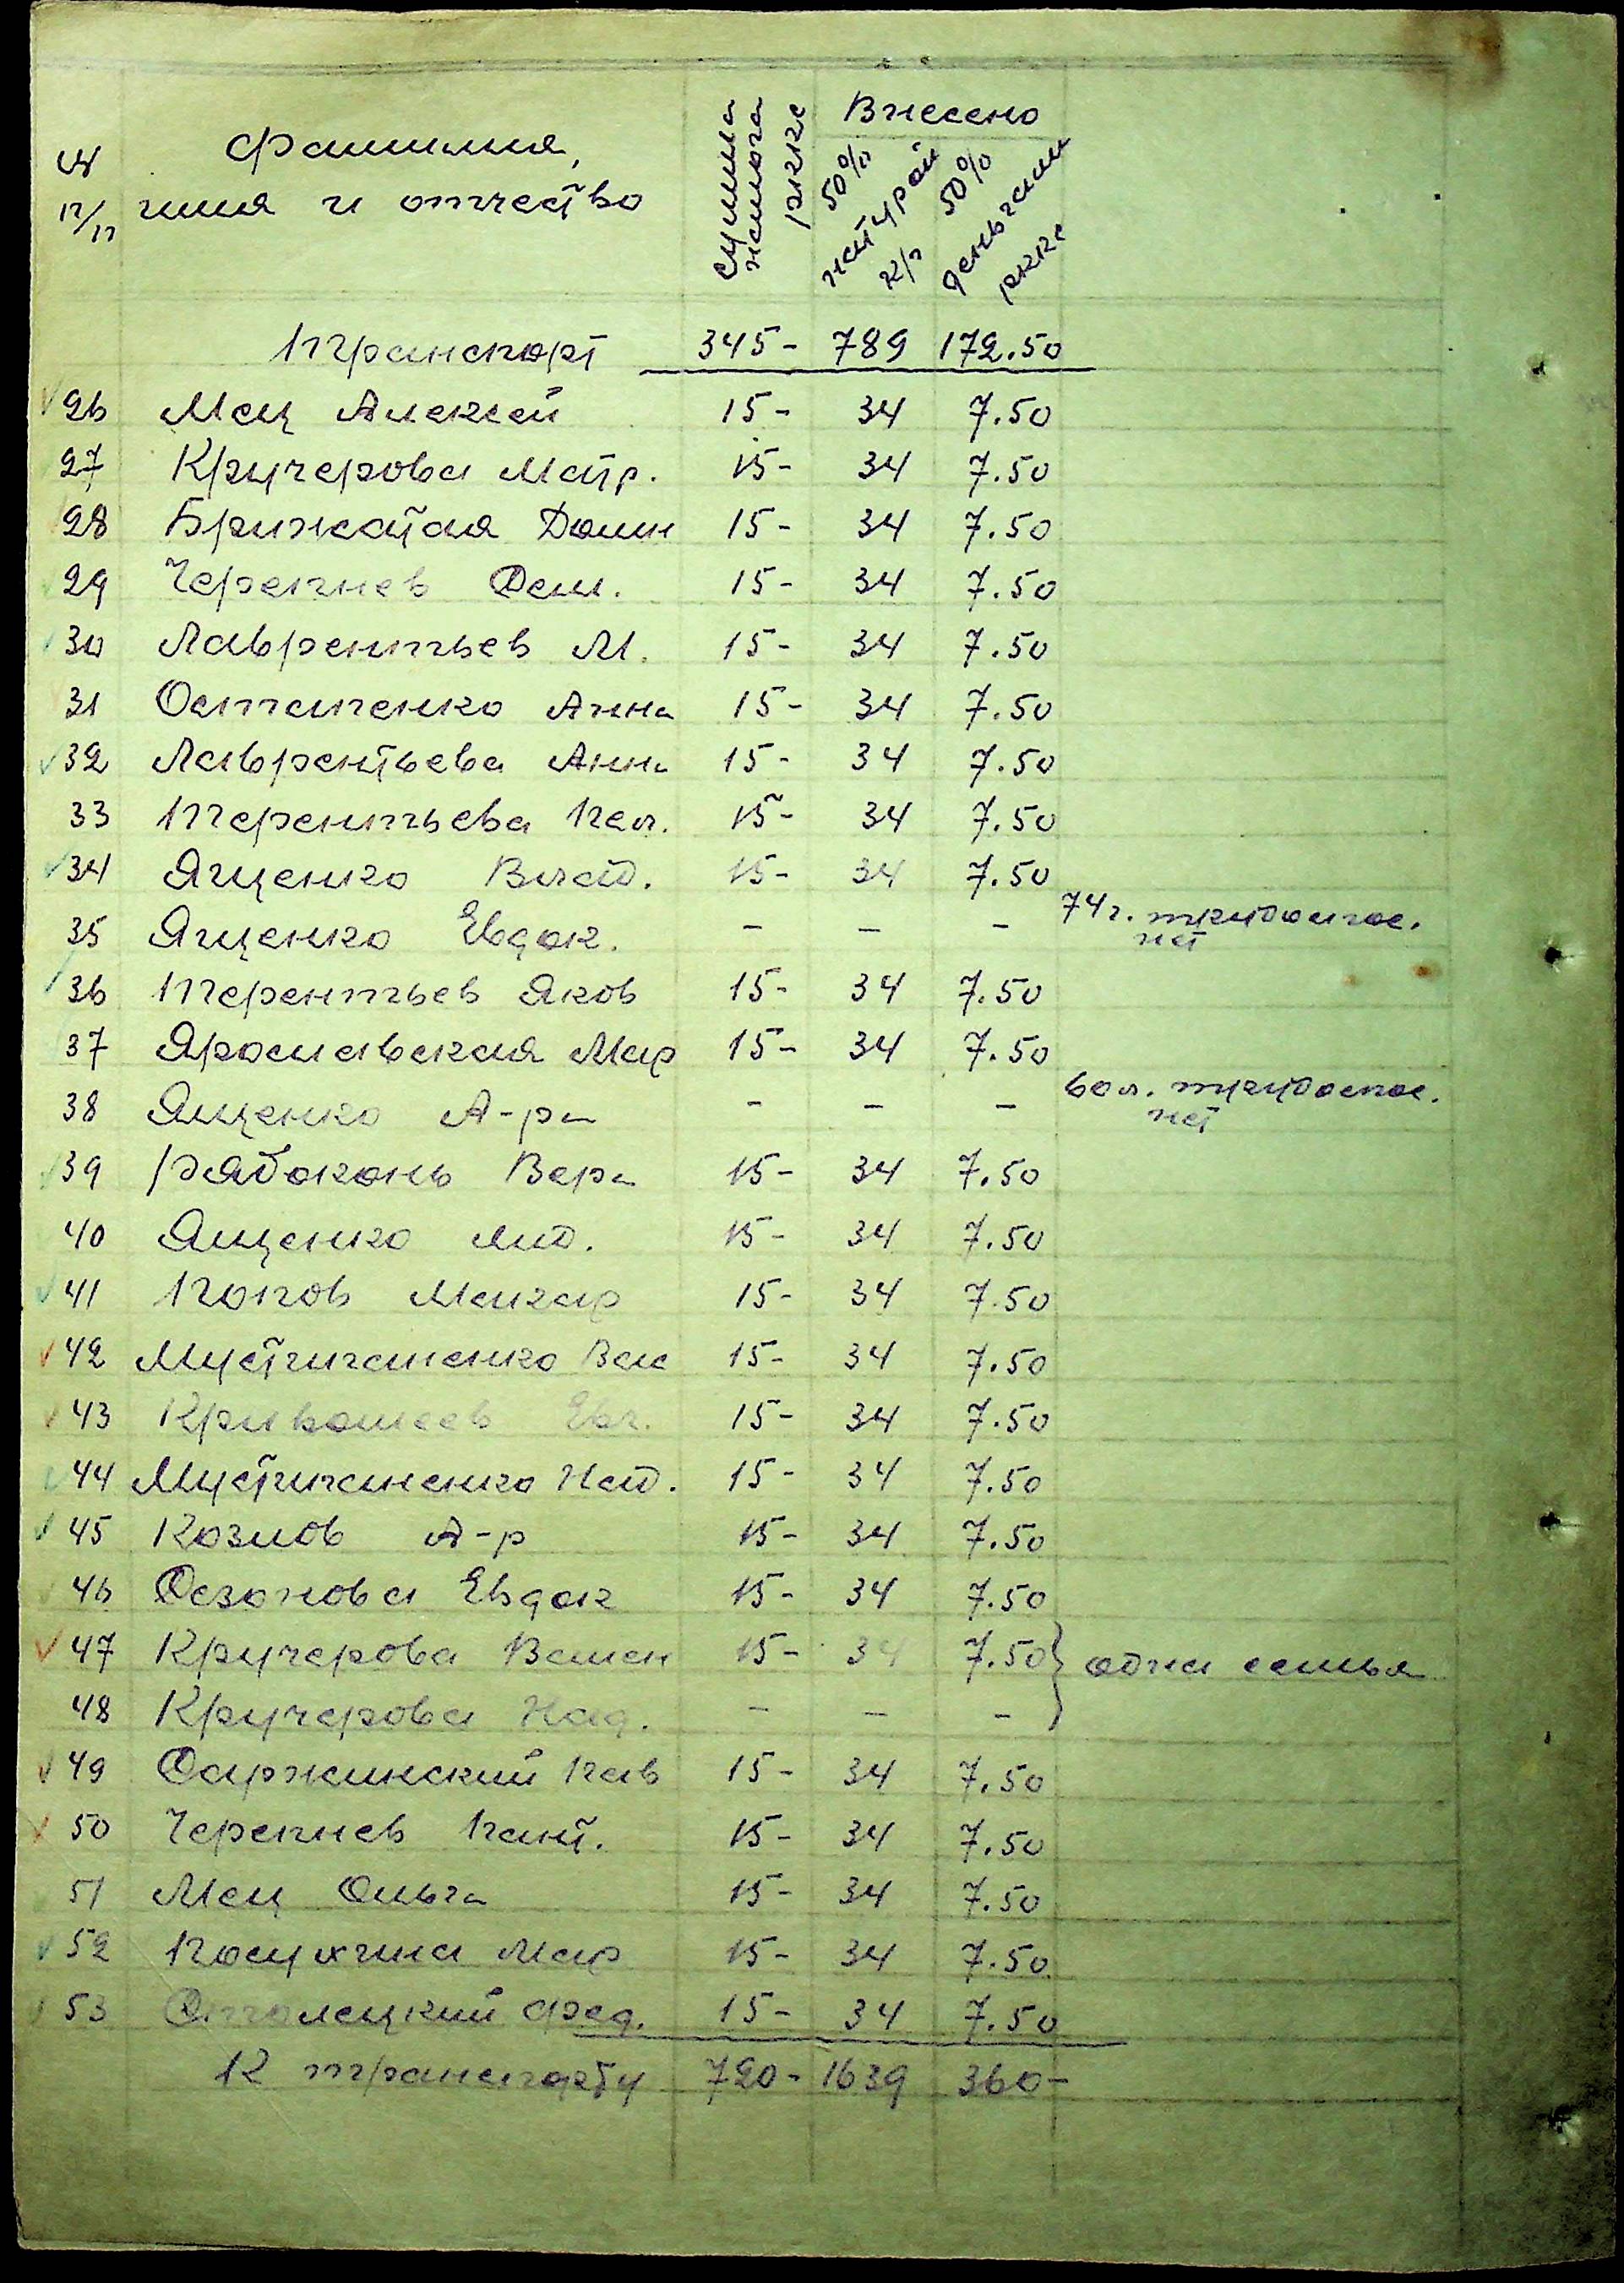 № п/п Фамилия, имя и отчество
сумма налога
Внесено
50% натурой к/г
50% деньгами
Транспорт 345- 789 172.50
26 Мец Алексей 15- 34 7.50
27 Кручерова Матр. 15- 34 7.50
28 Брижатая Домн 15- 34 7.50
29 Черепнев Дем. 15- 34 7.50
30 Лаврентьев М. 15- 34 7.50
31 Остапенко Анна 15- 34 7.50
32 Лаврентьева Анна 15- 34 7.50
33 Терентьева Пел. 15- 34 7.50
34 Ященко Влад. 15- 34 7.50
35 Ященко Евдок. - - - 74 г. трудоспос. нет
36 Терентьев Яков 15- 34 7.50
37 Ярославская Мар 15- 34 7.50
38 Ященко А-ра - - - бол. трудоспос. нет
39 Рябоконь Вера 15- 34 7.50
40 Ященко Лид. 15- 34 7.50
41 Попов Макар 15- 34 7.50
42 Мустиганенко Вас 15- 34 7.50
43 Кривошеев Евг. 15- 34 7.50
44 Мустиганенко Над. 15- 34 7.50
45 Козлов А-р 15- 34 7.50
46 Сезонова Евдок 15- 34 7.50
47 Кручерова Вален 15- 34 7.50 } одна семья
48 Кручерова Над. - - -
49 Саржинский Пав 15- 34 7.50
50 Черепнев Пант. 15- 34 7.50
51 Мец Ольга 15- 34 7.50
52 Посухина Мар 15- 34 7.50
53 Фед. 15- 34 7.50
К транспорту 720- 1639 360-